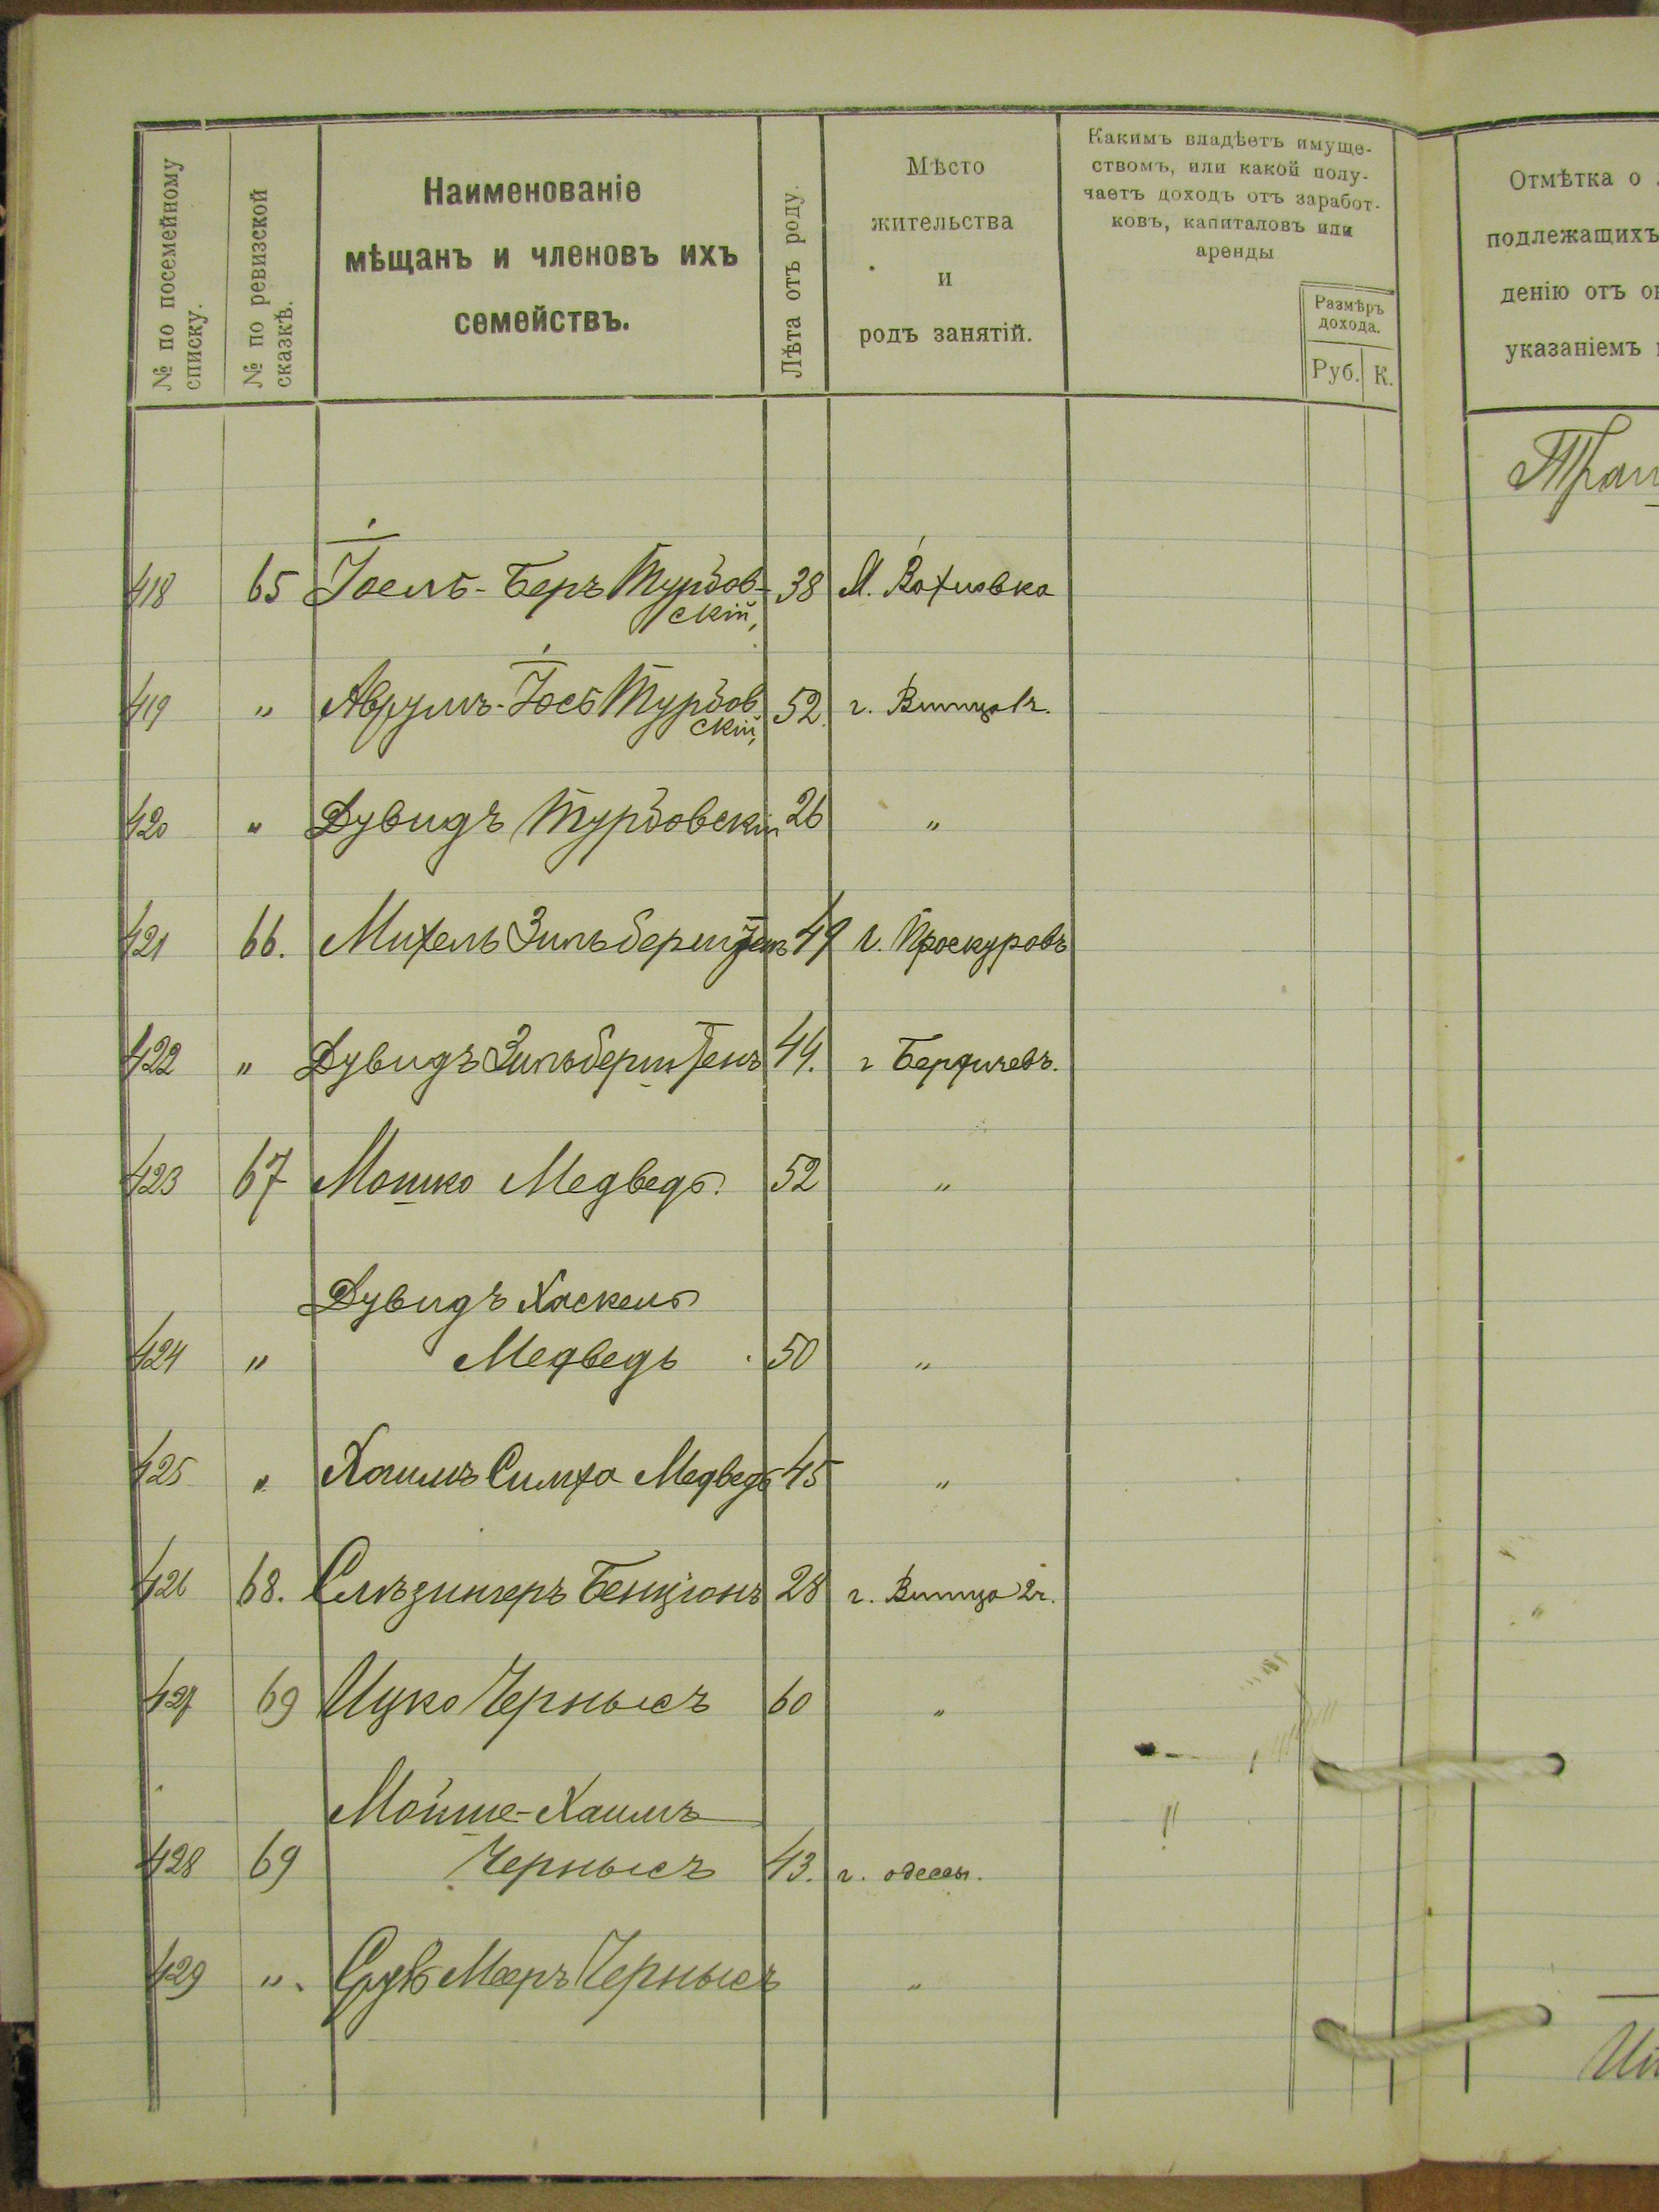 № по посемейному
списку.
№ по ревизской
сказкѣ.
Наименованіе
мѣщанъ и членовъ ихъ
семействъ.
Лѣта отъ роду.
Мѣсто
жительства
и
родъ занятій.
Какимъ владѣетъ имуще-
ствомъ, или какой полу-
чаетъ доходъ отъ заработ-
ковъ, капиталовъ или
аренды
Размѣръ
дохода.
Руб. К.
Отмѣтка о
подлежащихъ
денію отъ
указаніемъ
418 65 Іоель-Беръ Турбов- 38 М. Вахновка
скій,
419 " Аврумъ-Іось Турбов 52. г.
скій,
420 " Дувидъ Турбовскій 26 "
421 66. Михель Зильберштенъ 49 г. Проскуровъ
422 " Дувидъ Зильберштенъ 44. г Бердичевъ.
423 67 Мошко Медведь. 52 "
Дувидъ Хаскель
424 " Медведь 50 "
425 " Хаимъ Симха Медведь 45 "
426 68. Слѣзингеръ Бенціонъ 28 г. Винница 2ч.
427 69 Ицко Чернысъ 60 "
Мойше-Хаимъ
428 69 Чернысъ 43. г. одессы.
429 ". Сруль Мееръ Чернысъ "